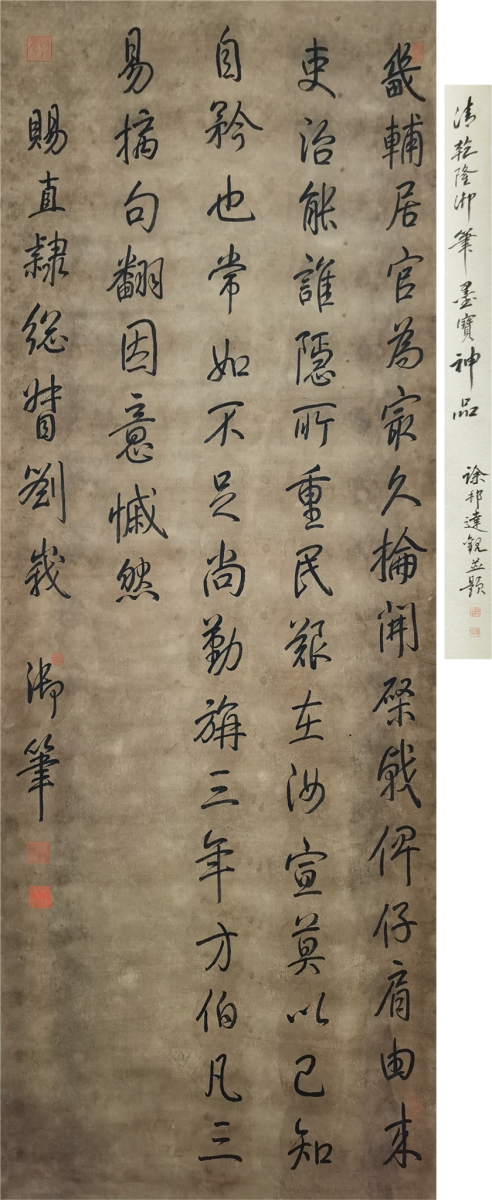 清乾隆御筆墨寶神品
徐邦達觀並題
畿輔居官為㝡久掄開棨戟俾仔肩由来
吏治能誰隱所重民艱在汝宣莫以已知
自矜也常如不足尚勤旃三年方伯凡三
易摛句翻因意慽然
賜直隸緫督劉峩 御筆